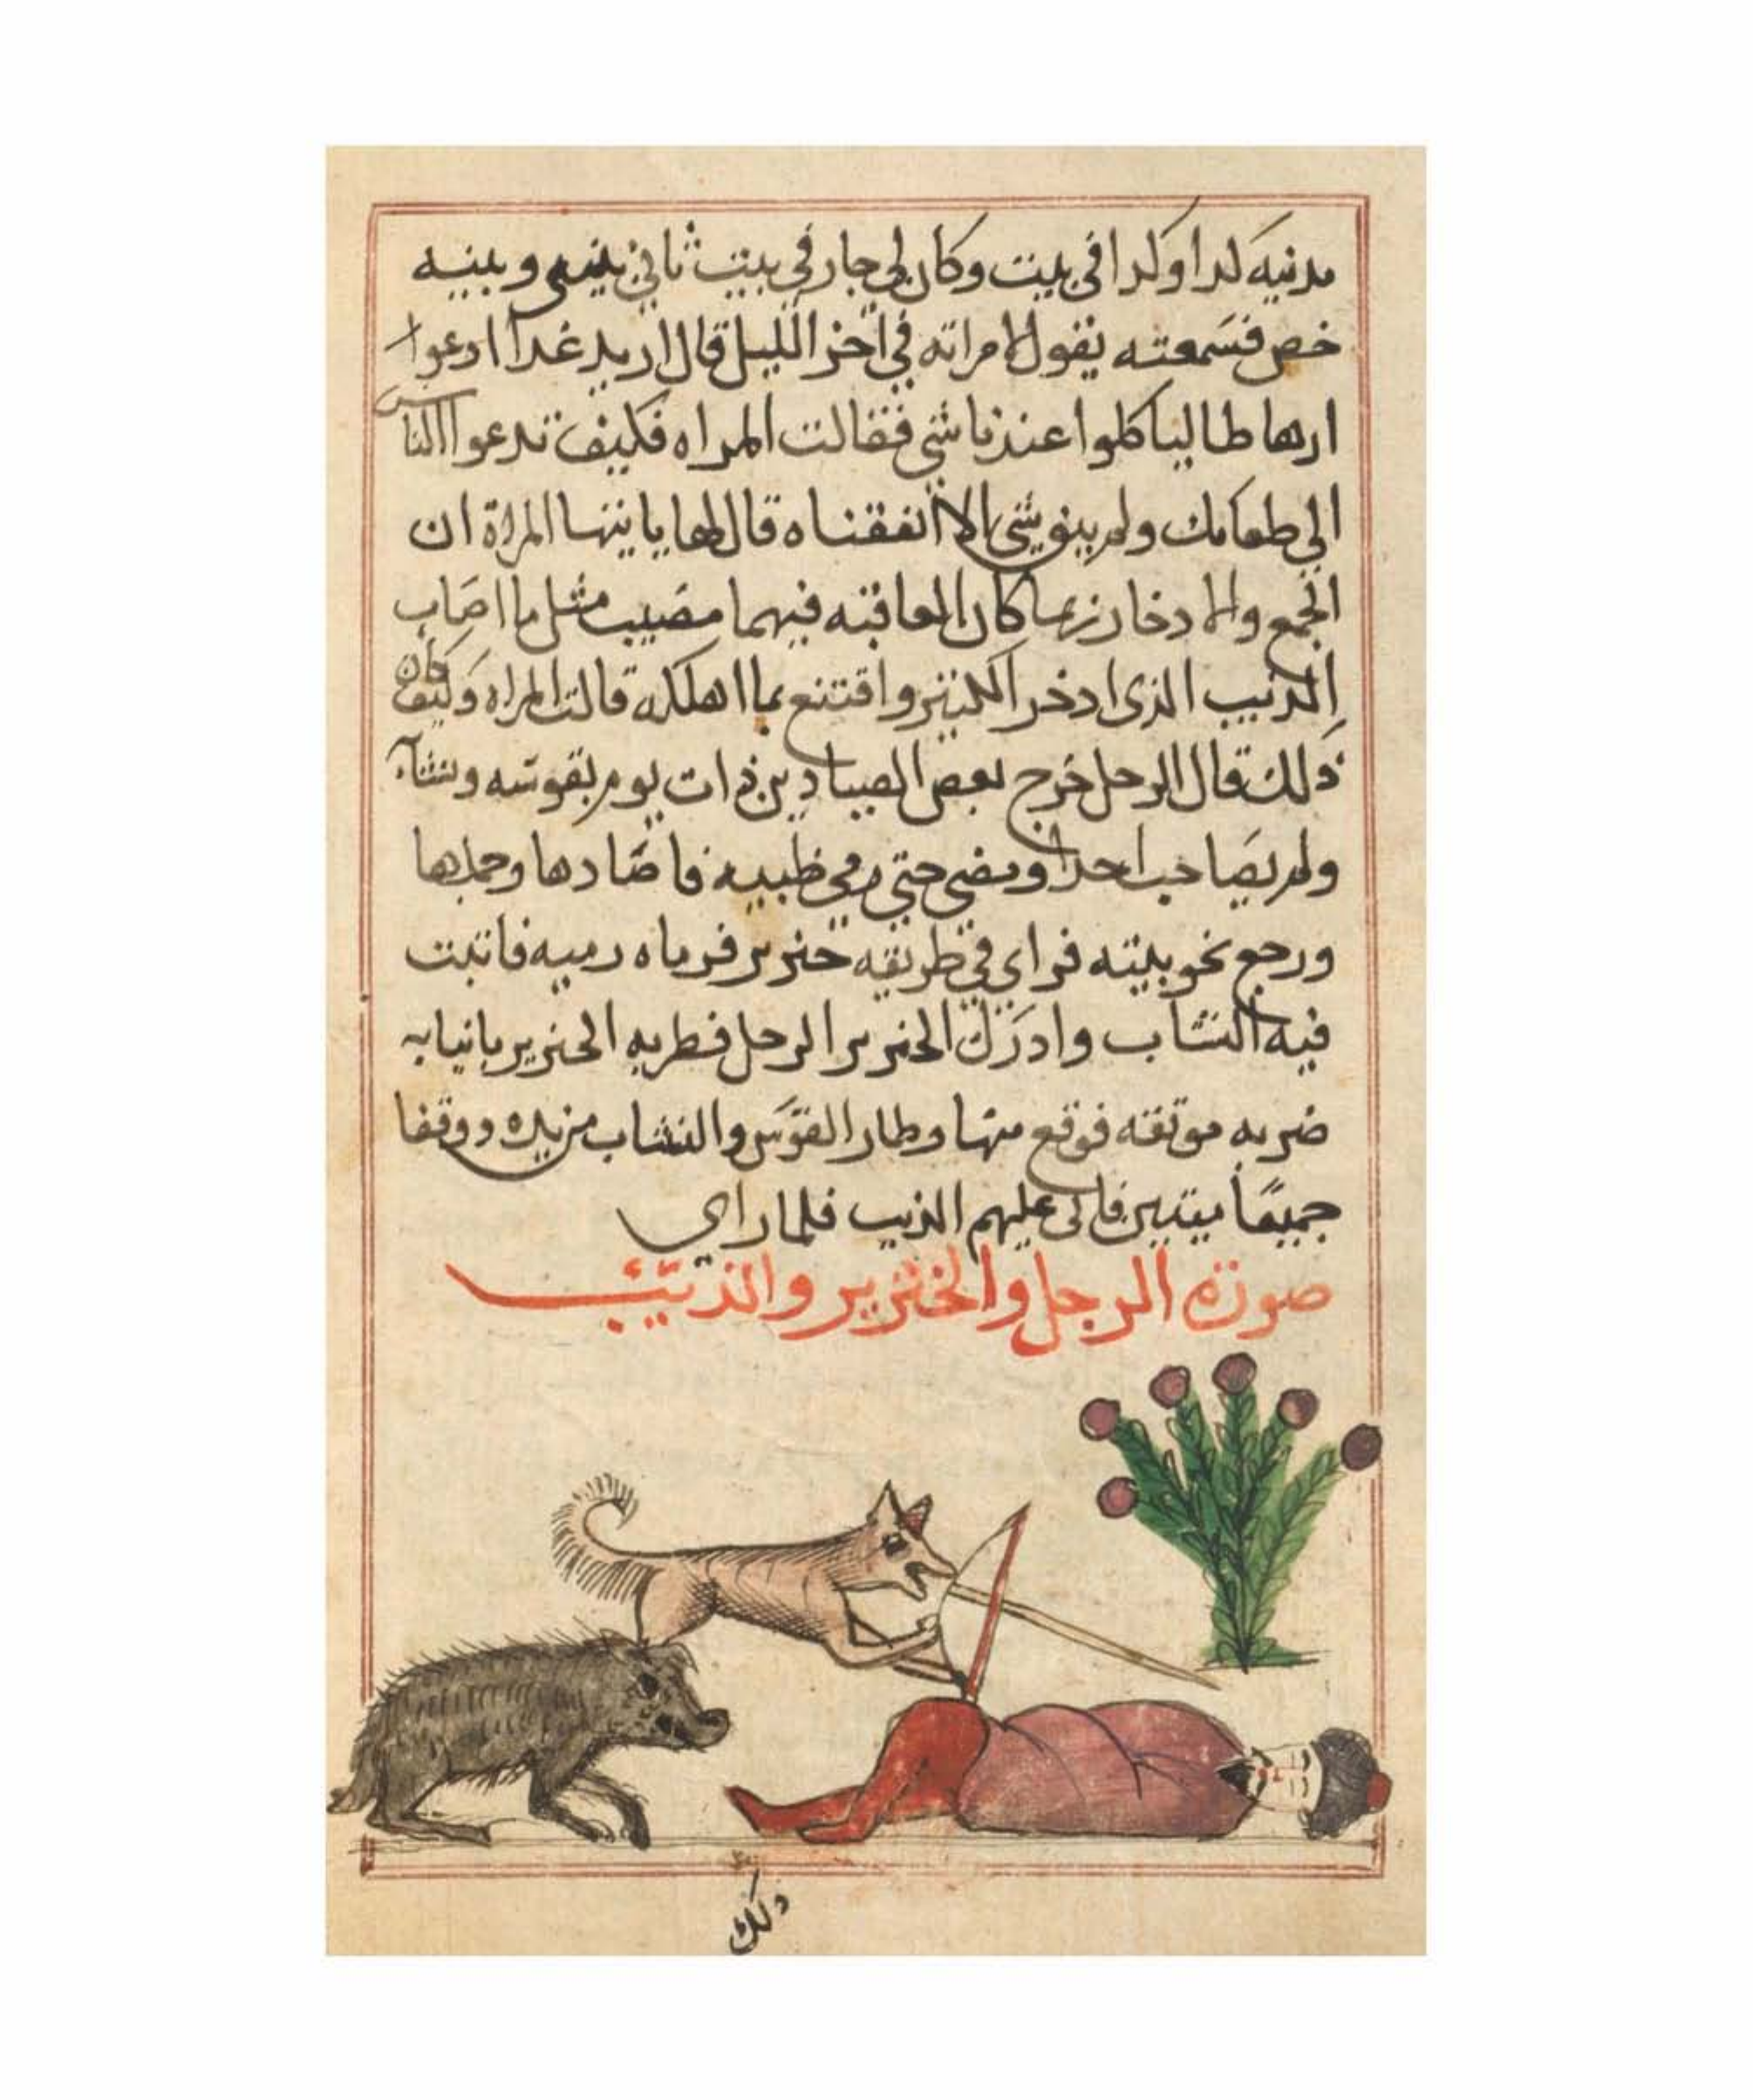 مدنية كدا وكدا في بيت وكان لي جار في بيت ثاني بيني وبينه
خص فسمعته يقول لامراته في اخر الليل قال اريد غدا ادعوا
ارهاطا لياكلوا عندنا شي فقالت المراه فكيف تدعوا الناس
الي طعامك ولم يبق شي الا انفقناه قال لها يا ايتها المراة ان
الجمع والادخار ربما كان العاقبته فيهما مصيب مثل ما اصاب
الديب الذي ادخر الكنيز واقتنع بما اهلكه قالت المراه وكيف كان
ذلك قال الرجل خرج بعض الصيادين ذات يوم بقوسه ونشابه
ولم يصاحب احدا ومضي حتي رمي ظبيه فاصادها وحملها
ورجع نحو بيته فراي في طريقه خنزير فرماه رميه فاثبت
فيه النشاب وادرك الخنزير الرجل فضربه الخنزير بانيابه
ضربه موثقه فوقع منها وطار القوس والنشاب من يده ووقفا
جميعا ميتين فاتى عليهم الذيب فلما راي
صورة الرجل والخنزير والذئيب
ذلك